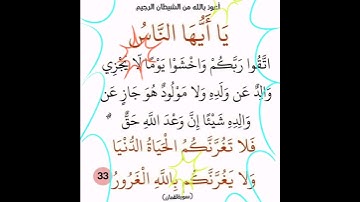 أعوذ بالله من الشيطان الرجيم
يَا أَيُّهَا النَّاسُ
اتَّقُوا رَبَّكُمْ وَاخْشَوْا يَوْمًا لَّا يَجْزِي
وَالِدٌ عَن وَلَدِهِ وَلَا مَوْلُودٌ هُوَ جَازٍ عَن
وَالِدِهِ شَيْئًا إِنَّ وَعْدَ اللَّهِ حَقٌّ
فَلَا تَغُرَّنَّكُمُ الْحَيَاةُ الدُّنْيَا
وَلَا يَغُرَّنَّكُم بِاللَّهِ الْغَرُورُ
33
(سورة لقمان)